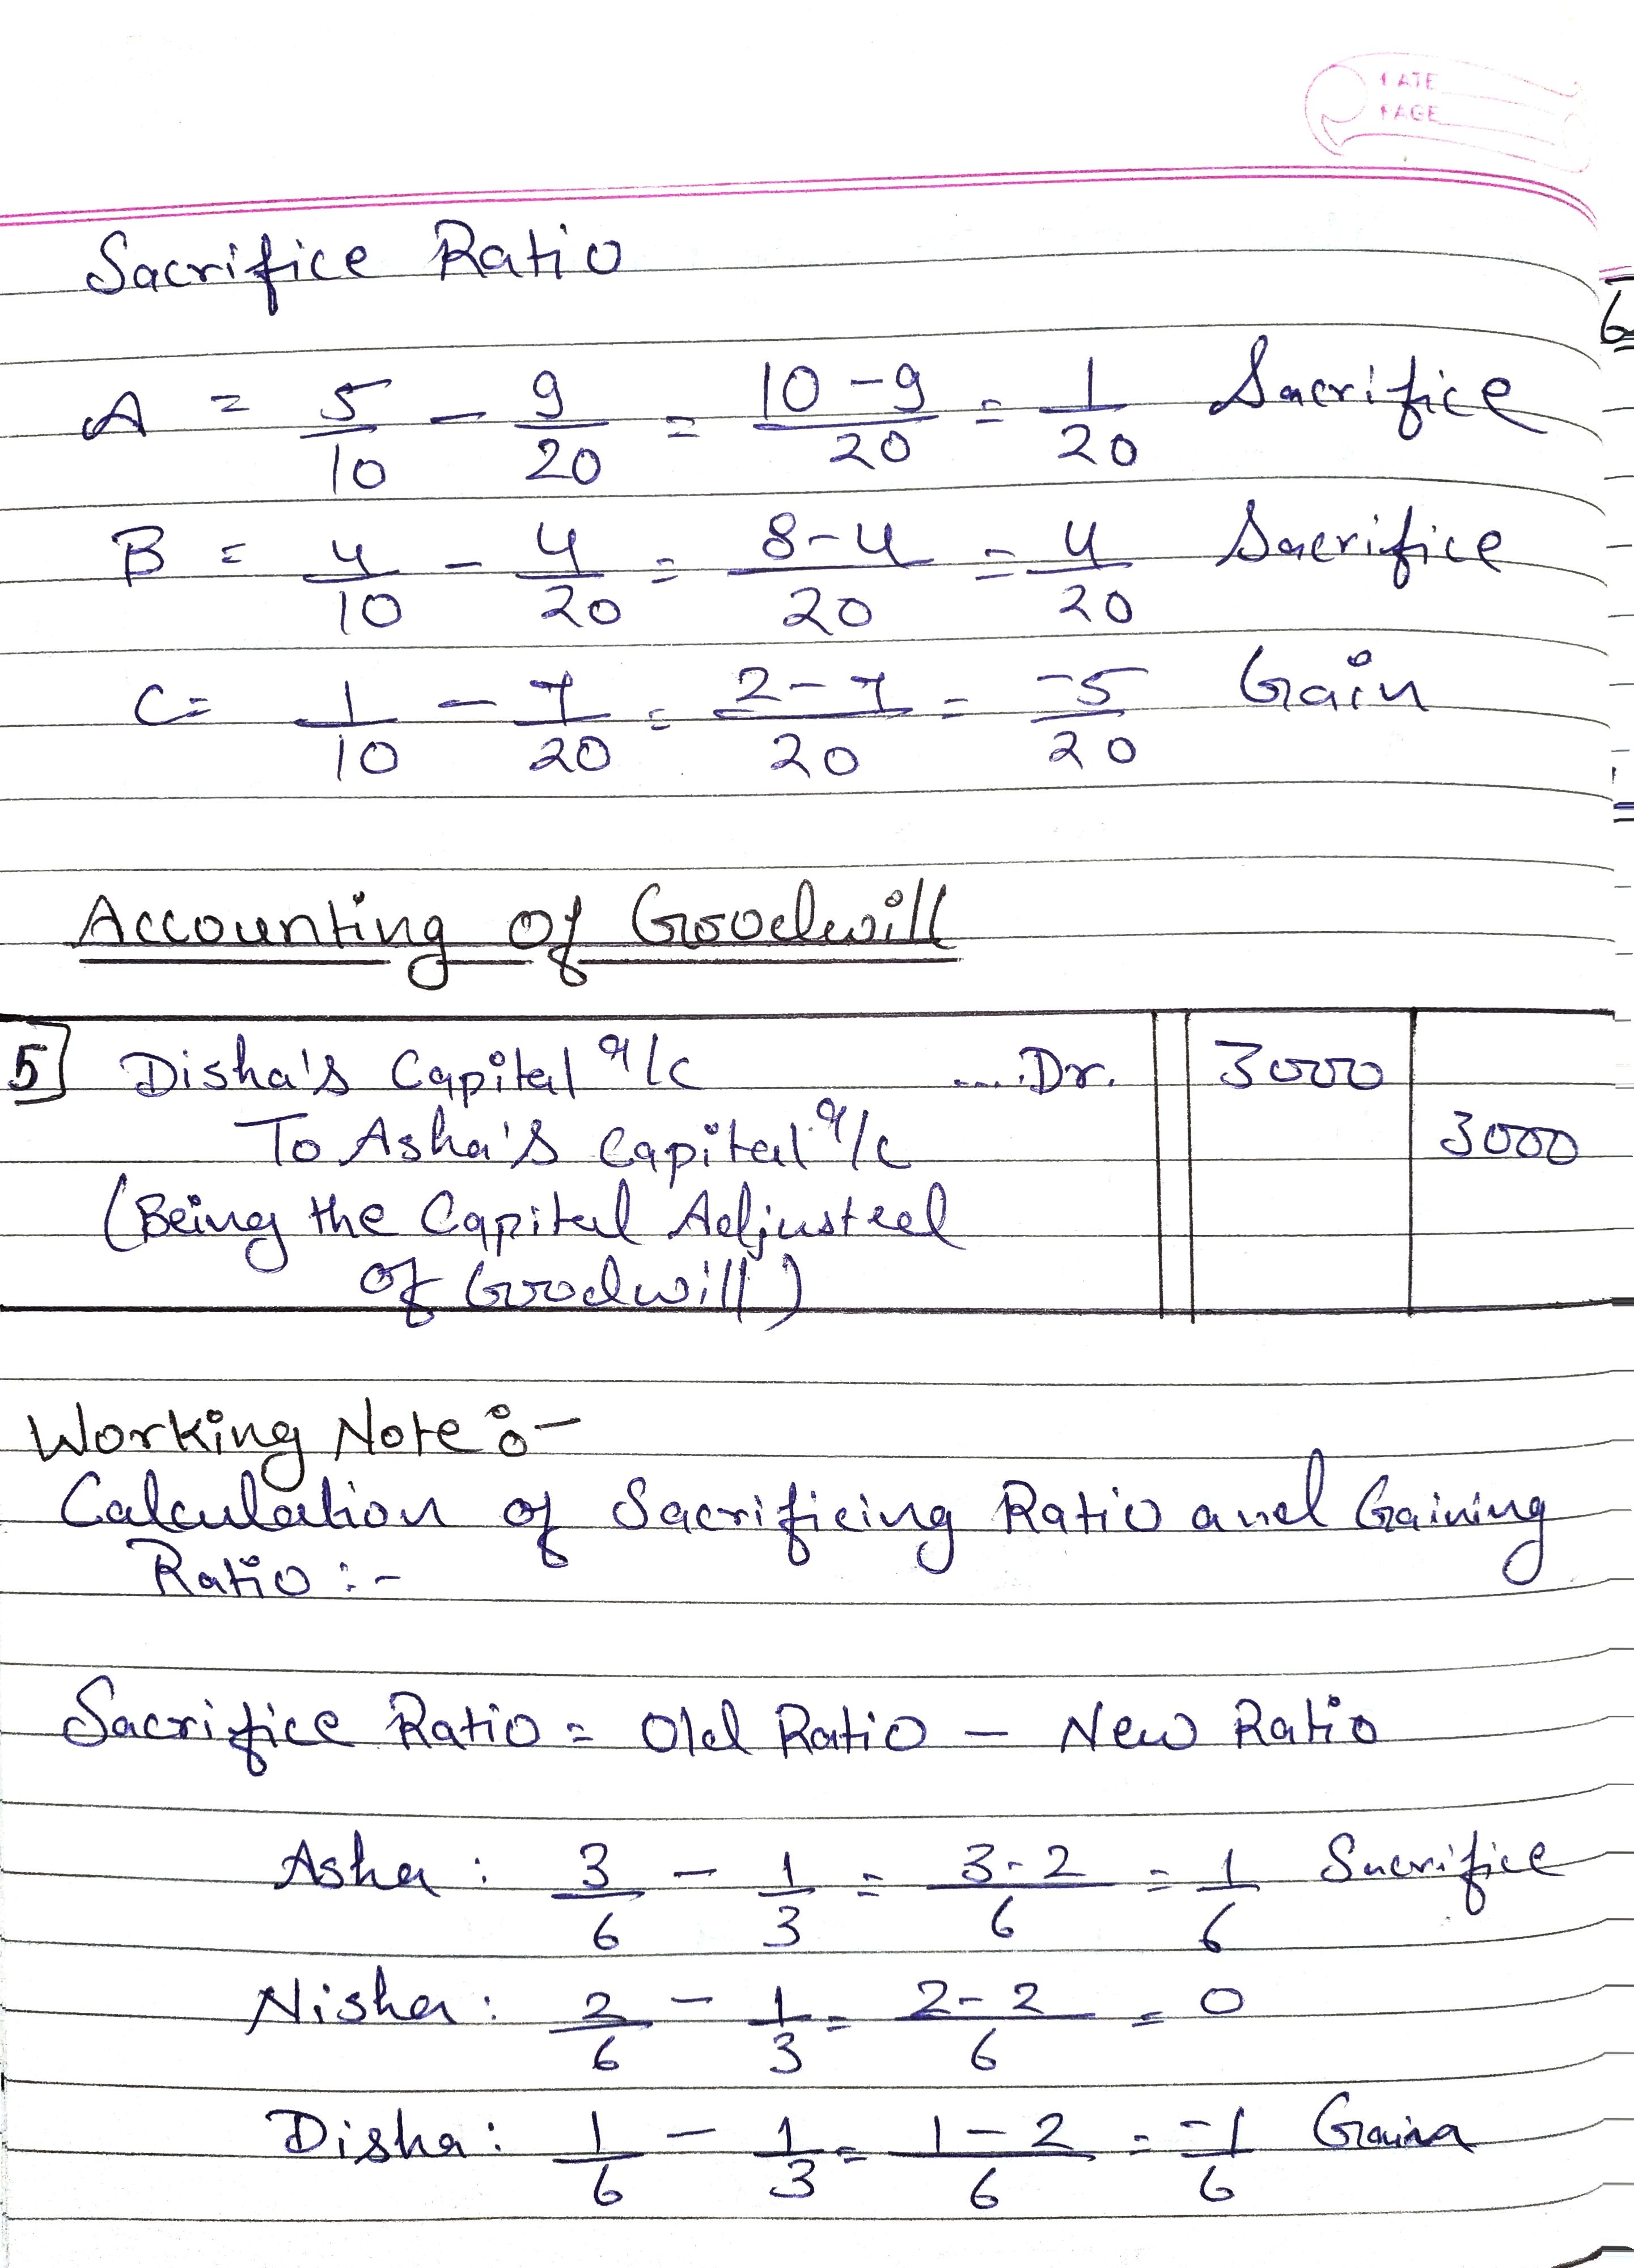 DATE
PAGE
Sacrifice Ratio
A = 5/10 - 9/20 = 10-9/20 = 1/20 Sacrifice
B = 4/10 - 4/20 = 8-4/20 = 4/20 Sacrifice
C = 1/10 - 7/20 = 2-7/20 = -5/20 Gain
Accounting of Goodwill
5] Disha's Capital a/c ....Dr. 3000
To Asha's Capital a/c 3000
(Being the Capital Adjusted
of Goodwill)
Working Note :-
Calculation of Sacrificing Ratio and Gaining
Ratio :-
Sacrifice Ratio = Old Ratio - New Ratio
Asha : 3/6 - 1/3 = 3-2/6 = 1/6 Sacrifice
Nisha : 2/6 - 1/3 = 2-2/6 = 0
Disha : 1/6 - 1/3 = 1-2/6 = -1/6 Gaina